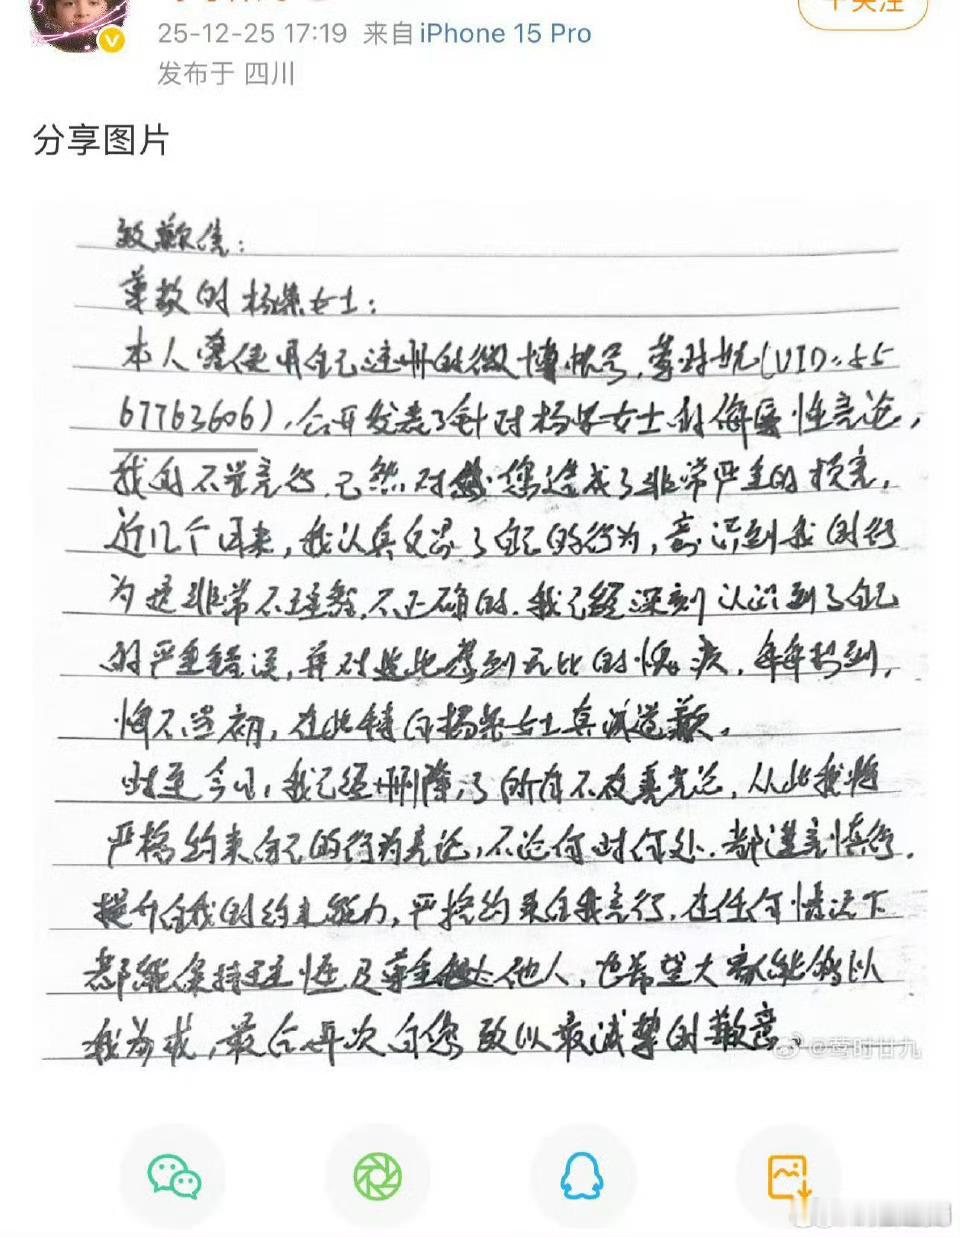 +关注
25-12-25 17:19 来自 iPhone 15 Pro
发布于 四川
分享图片
致歉信：
尊敬的杨紫女士：
本人曾使用自己注册的微博帐号，莺时 (UID:55
67763606)，公开发表了针对杨紫女士的侮辱性言论，
我的不当言行，已然对您造成了非常严重的损害，
近几个月来，我认真反思了自己的行为，意识到我的行
为是非常不理智，不正确的，我已经深刻认识到了自己
的严重错误，并对此感到无比的愧疚，每每想到，
悔不当初，在此特向杨紫女士真诚道歉。
时至今日，我已经删除了所有不友善言论，从此我将
严格约束自己的行为言论，不论何时何处，都谨言慎行，
提升自我的约束能力，严格约束自我言行，在任何情况下
都能保持理性及尊重他人，也希望大家能够以
我为戒，最后再次向您致以最诚挚的歉意。
@莺时廿九